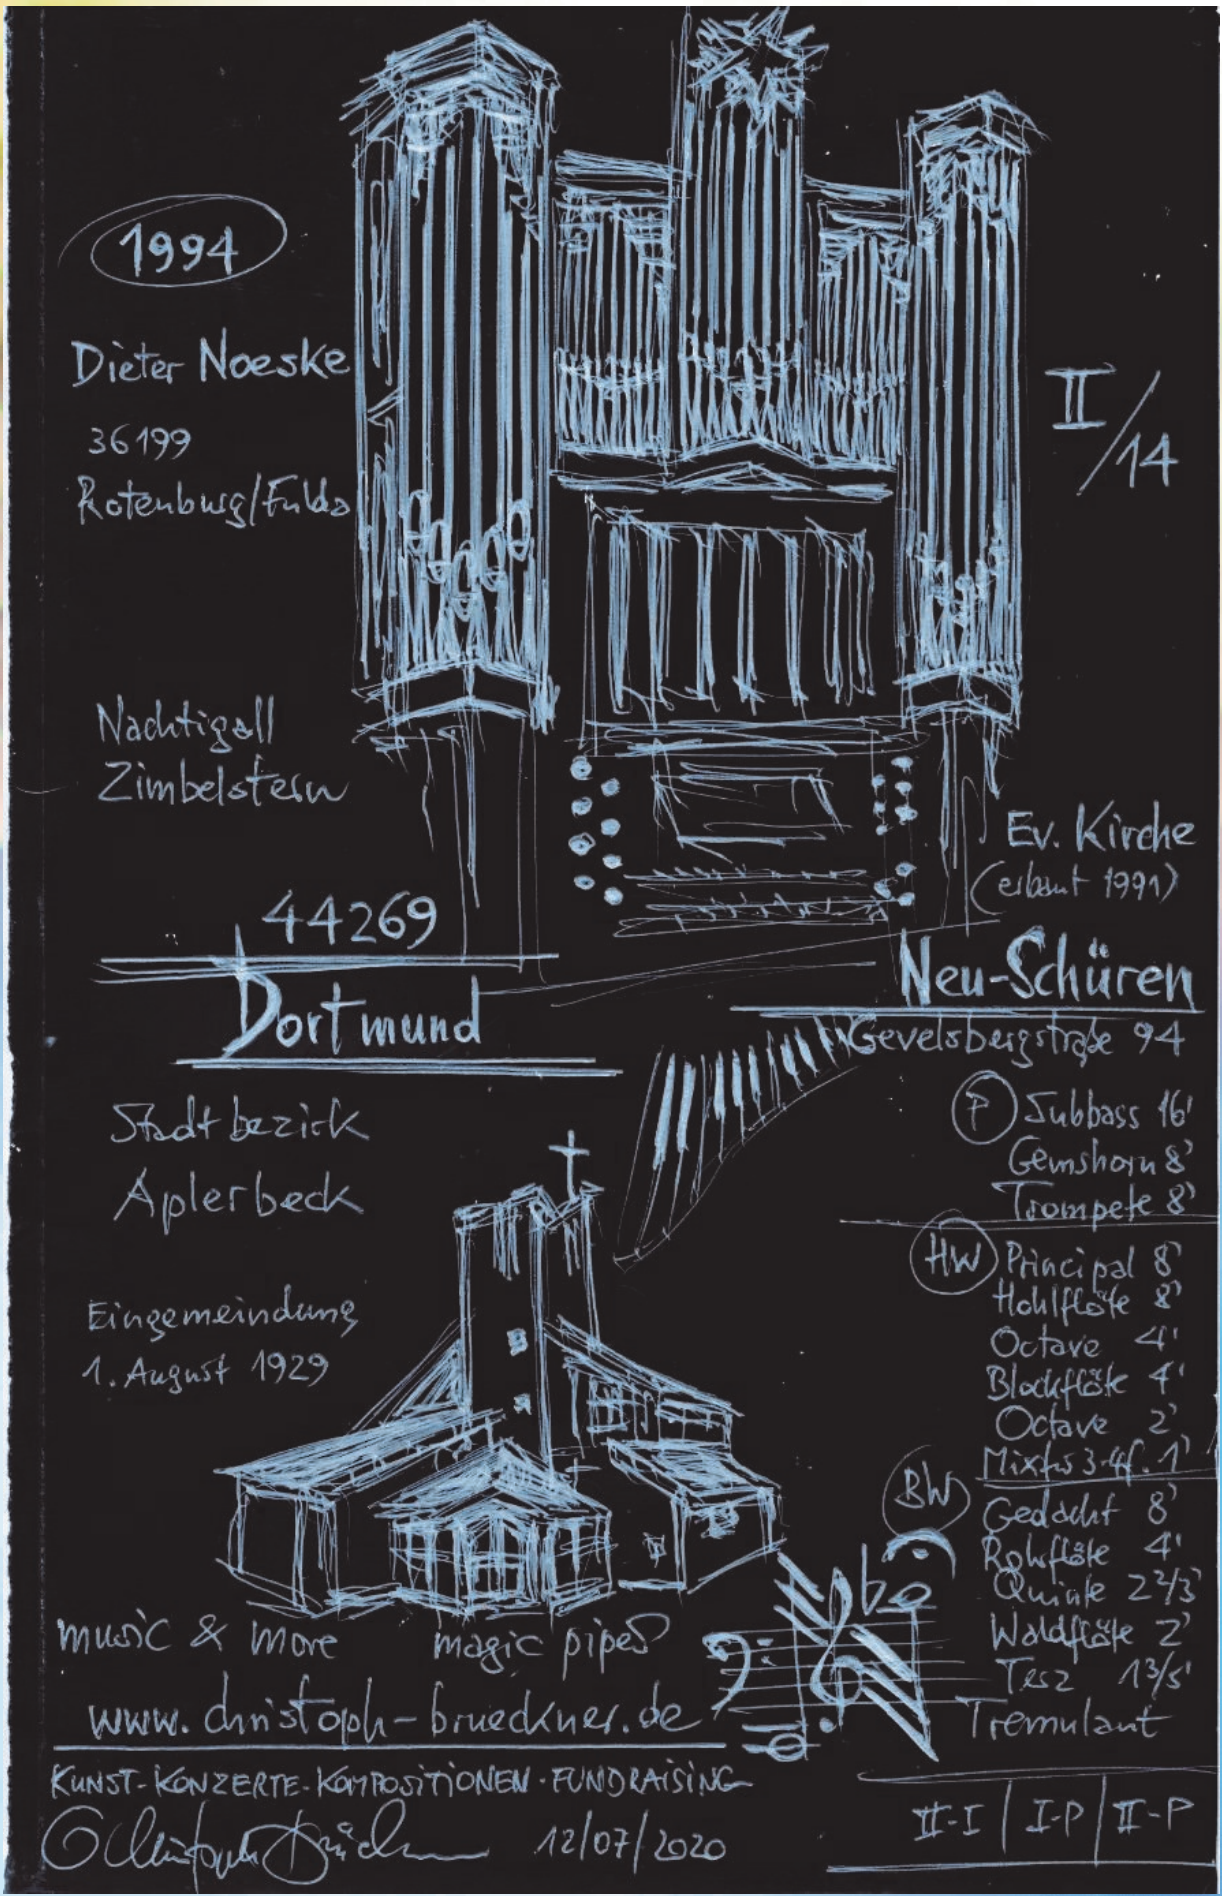 1994
Dieter Noeske
36199
Rotenburg/Fulda
II/14
Nachtigall
Zimbelstern
Ev. Kirche
(erbaut 1991)
44269
Dortmund
Neu-Schüren
Gevelsbergstraße 94
Stadtbezirk
Aplerbeck
Eingemeindung
1. August 1929
P Subbass 16'
Gemshorn 8'
Trompete 8'
HW Principal 8'
Hohlflöte 8'
Octave 4'
Blockflöte 4'
Octave 2'
Mixtur 3-4f. 1'
BW Gedackt 8'
Rohrflöte 4'
Quinte 2 2/3'
Waldflöte 2'
Terz 1 3/5'
Tremulant
II-I | I-P | II-P
music & more magic pipes
www.christoph-brueckner.de
KUNST-KONZERTE-KOMPOSITIONEN-FUNDRAISING
Christoph Brückner 12/07/2020